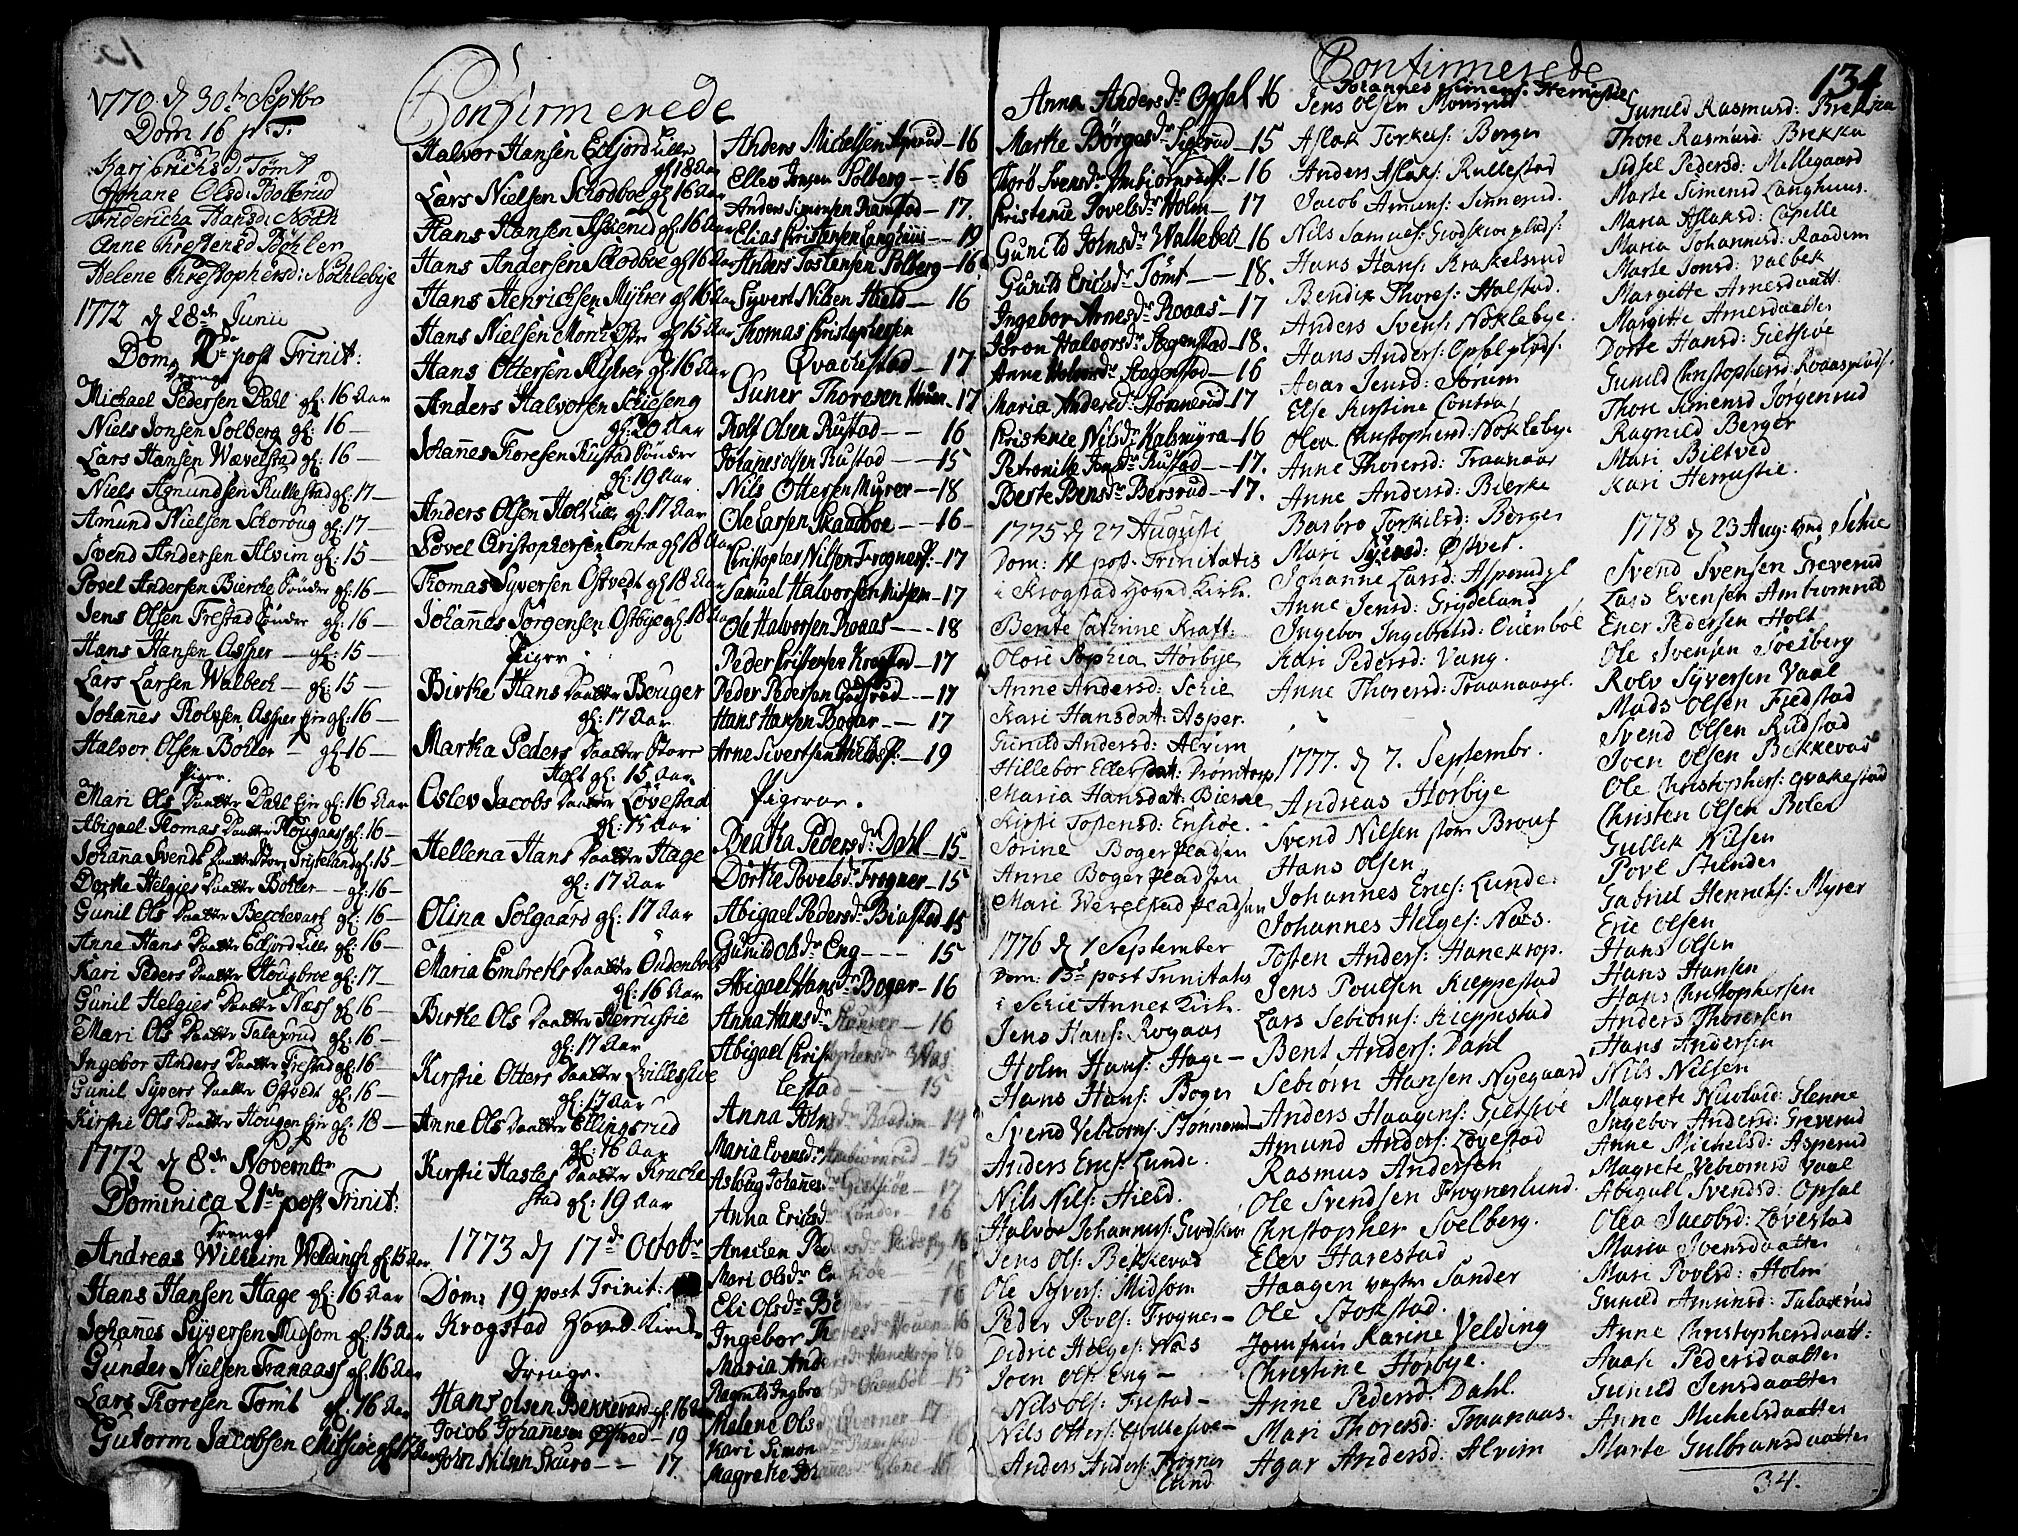 Confirmerede
1770 d 30te Septbr
Dom 16 p. Tr.
Kari Erichsd: Tømt
Johane Olsd: Bøllerud
Fridericha Hansd: Noth
Anne Christensd Bøhler
Helene Christophersd: Nøchlebÿe
1772 d 28de Junii
Dom 2de post Trinit:
Drenge
Michael Pedersen Dahl gl: 16 Aar
Niels Jonsen Solberg gl: 16 —
Lars Hansen Wævelstad gl: 16 —
Niels Amundsen Rullestad gl: 17 —
Amund Nielsen Schoroug gl: 17 —
Svend Andersen Alvim gl: 15 —
Povel Andersen Bierche Sønder gl: 16 —
Jens Olsen Frestad Sønder gl: 16 —
Hans Hansen Asper — gl: 15 —
Lars Larsen Walbech — gl: 15 —
Johannes Rolvsen Asper Eje gl: 16 —
Halvor Olsen Bøhler — gl: 16 —
Piger.
Mari Ols Daatter Dahl Eje gl: 16 Aar
Abigael Thomas Daatter Hougaas gl: 16 —
Johanna Svends Daatter Store Griseland gl: 15 —
Dorthe Helgies Daatter Bøhler — gl: 16 —
Gunil Ols Daatter Bechevard gl: 16 —
Anne Hans Daatter Eedfiord Lille gl: 16 —
Kari Peders Daatter Hougbroe gl: 17 —
Gunil Helgies Daatter Næss gl: 16 —
Mari Ols Daatter Talaxrud gl: 16 —
Ingebor Anders Daatter Frestad gl: 16 —
Gunil Syvers Daatter Ostvedt gl: 16 —
Kirstie Ols Daatter Hougen Eje gl: 18 —
1772 d 8de Novembr
Dominica 21de post Trinit:
Drenge
Andreas Wilhelm Weldingh gl: 15 Aar
Hans Hansen Hage gl: 16 Aar
Johannes Syversen Midsom gl: 15 Aar
Gunder Nielsen Tranaass gl: 16 Aar
Lars Thoresen Tømt gl: 16 Aar
Gutorm Jacobsen gl: 17 Aar
Halvor Hansen Edfiord Lille
gl 18 Aar
Lars Nielsen Schodboe gl 16 Aar
Hans Hansen gl 16 Aar
Hans Andersen Schodboe gl 16 Aar
Hans Henrichsen Myhrer gl 16 Aar
Hans Nielsen gl 15 Aar
Hans Ottersen Myhrer gl 16 Aar
Anders Halvorsen Schieseng
gl: 20 Aar
Johannes Thoresen Rustad Sønder
gl: 19 Aar
Anders Olsen Holt Lille gl: 17 Aar
Povel Christophersen Contra gl 18 Aar
Thomas Syversen Ostvedt gl 18 Aar
Johannes Jørgensen Ostbye gl 18 Aar
Piger
Birthe Hans Daatter Bouger
gl: 17 Aar
Martha Peders Daatter Store
Holt gl: 15 Aar
Oslev Jacobs Daatter Løvestad
gl: 15 Aar
Hellena Hans Daatter Hage
gl: 17 Aar
Olina Solgaard gl: 17 Aar
Maria Embreths Daatter Oudenbøll
gl: 16 Aar
Birthe Ols Daatter Herrustie
gl: 17 Aar
Kirstie Otters Daatter Qvillesiøe
gl: 17 Aar
Anne Ols Daatter Ellingsrud
gl: 16 Aar
Kirstie Hasles Daatter Krache
stad gl: 19 Aar
1773 d 17de Octobr
Dom: 19 post Trinit:
Krogstad Hoved Kirche
Drenge
Hans Olsen Bekkevard gl 16 Aar
Jocob Johannesen Ostved — 19
John Nilsen Skuro — — 17
Anders Michelsen Asprud — 16
Ellev Jonsen Solberg — — 16
Anders Simonsen Ramstad — 17.
Elias Christensen Langhuus — 19
Anders Tostensen Solberg — 16
Syvert Nilsen Hield — 16
Thomas Christophersen
Qvachestad — 17
Guner Thoresen Houen — 17
Rolf Olsen Rustad — — 16
Johannes olsen Rustad — — 15
Nils Ottersen Myrer — 18
Ole Larsen Skaadboe — — 16 —
Christopher Nilsen Frogner Pl: — 17
Samuel Halvorsen — 17
Ole Halvorsen Roaas — — — 18
Peder Christensen Krogstad — 17
Peder Pedersen Gudsrud — — 17
Hans Hansen Bogar — — 17
Arne Sivertsen — 19
Pigerne.
Beatha Pedersdr Dahl — 15
Dorthe Povelsdr Frogner — 15
Abigael Pedersdr Biastad 15
Gunild Olsdr Eng — — — 15
Abigael Hansdr Bogar — 16
Anna Hansdr — 16
Abigael Christophersdr
lestad — — 15
Anna Johnsdr Raadim — 14
Maria Evensdr Ambiørnrud — 15
Aslaug Johannesdr Gietsiøe — 17
Anna Erichsdr Lunder — 16
Anichen Pedersdr
Mari Olsdr — 16
Eli Olsdr — 16
Ingebor Thoresdr Houen — 16
Maria Andersdr Hanekrop 16
Ragnild Ingebrosdr Ouenbøl — 15
Helene Olsdr Qverner — 17
Kari Simonsdr Ramstad — 16
Magrethe Johannesdr Glene — 16
Confirmerede
134
Anna Andersdr Opsal 16
Marthe Børgesdr Sigerud — 15
Thorø Svensdr Ambiørnrud — 16
Christenie Povelsdr Holm — 17
Gunild Johnsdr Wallebek — 16
Gunild Erichsdr Tømt — 18.
Ingebor Arnesdr Roaas — 17
Jøron Halvorsdr Stegenstad — 18.
Anne Halvorsdr Stegenstad — 16
Maria Andersdr Stønnerud — 17
Christenie Nilsdr Kalsmyra — 16
Petronille Jonsdr Rustad — 17.
Berte Bensdr Bersrud — 17.
1775 d 27 Augusti
Dom: 11 post Trinitatis
i Krogstad Hoved Kirke
Bente Cathrine Kraft:
Olose Sophia Hørbye
Anne Andersd: Schie
Kari Hansdatt: Asper.
Gunild Andersd: Alvim
Hillebor Ellefsdatt: Drømtorp
Maria Hansdatt: Bierke
Kirsti Tostensd: Ensiøe.
Sørine Boger pladsen
Anne Boger pladsen
Mari Wevelstad pladsen
1776 d 1 September
Dom: 13de post Trinitatis
i Schie Annex Kirke
Jens Hans: Rogaas
Holm Hans: Hage —
Hans Hans: Boger
Svend Vebiørns: Stønnerud
Anders Erics: Lunde.
Nils Nils: Hield.
Halvor Johannes: Gudskiøn
Jens Ols: Bekkevad
Ole Syvers: Midsom
Peder Povels: Frogner —
Didric Helges: Næs
Joen Ols: Eng —
Nils Ols: Frestad —
Nils Otters: Qvillesiøe —
Anders Anders: Frogner
Lund
Johannes Simens: Herrustie
Jens Olsen Monsrud
Aslak Torkels: Berger
Anders Aslaks: Rullestad
Jacob Amuns: Sinnerud.
Nils Samuels: Gudskiøn plads:
Hans Hans: Krakelsrud
Bendix Thores: Halstad.
Anders Svens: Nøklebye.
Hans Anders: Opsal plads:
Agar Jensd: Sørum
Else Kirstine Contra
Olea Christophersd: Nøklebye
Anne Thoresd: Traanaas
Anne Andersd: Bierke
Barbro Torkilsd: Berger
Mari Syversd: Østvet.
Johanne Larsd: Asperudpl
Anne Jensd: Grydeland
Ingebor Ingebretsd: Ouenbøl
Kari Pedersd: Vang.
Anne Thoresd: Traanaaspl.
1777. d 7. Septembr.
Andreas Hørbye
Svend Nilsen
Hans Olsen
Johannes Erics: Lunde
Johannes Helges: Næs.
Tosten Anders: Hanekrop.
Jens Poulsen Kieppestad
Lars Sebiørns: Kieppestad
Bent Anders: Dahl
Sebiørn Hansen Nyegaard
Anders Haagens: Gietsiøe
Amund Anders: Løvestad
Rasmus Andersen
Ole Svendsen Frognerlund.
Christopher Soelberg.
Elev Harestad
Haagen vestre Sander
Ole Stokstad.
Jomfrue Karine Velding
Christine Hørbye.
Anne Pedersd: Dahl.
Mari Thoresd: Traanaas.
Agar Andersd: Alvim
Gunild Rasmusd: Brekka
Thore Rasmusd: Brekka
Sidsel Pedersd: Mellegaard
Marte Simensd Langhuus.
Maria Aslaksd: Capelle
Maria Johannesd: Raadim
Marte Jonsd: Valbek
Margitte Arnesdaatt
Margitte Arnesdaatter
Dorte Hansd: Gietsiøe
Gunild Christophersd: Roaas plads:
Thore Simensd Jørgenrud
Ragnild Berger
Mari Biltved
Kari Herrustie.
1778 d 23 Aug: ved Schie
Svend Svensen Greverud
Lars Evensen Ambiørnrud
Ener Pedersen Holt
Ole Svensen Soelberg
Rolv Syversen Vaal
Mads Olsen Fiedstad
Svend Olsen Rudstad
Joen Olsen Bekkevad
Ole Christophers: qvakestad
Christen Olsen Bøler
Gullek Nilsen
Povl Stender
Gabriel Henrichs: Myrer
Eric Olsen
Hans Olsen
Hans Hansen
Hans Christophersen
Anders Thoresen
Hans Andersen
Nils Nilsen
Magrete Nicolaid: Glenne
Ingebor Andersd: Greverud
Anne Michelsd: Asperud
Magrete Vebiørnsd Vaal
Abigaël Svendsd: Opsal
Olea Jacobsd: Løvestad
Maria Svensdaatter
Mari Povelsd: Holm
Gunild Amunsd: Talaxrud
Anne Christophersdaatt:
Aase Pedersdaatter
Gunild Jensdaatter
Anne Michelsdaatter
Marte Gulbransdaatter
34.